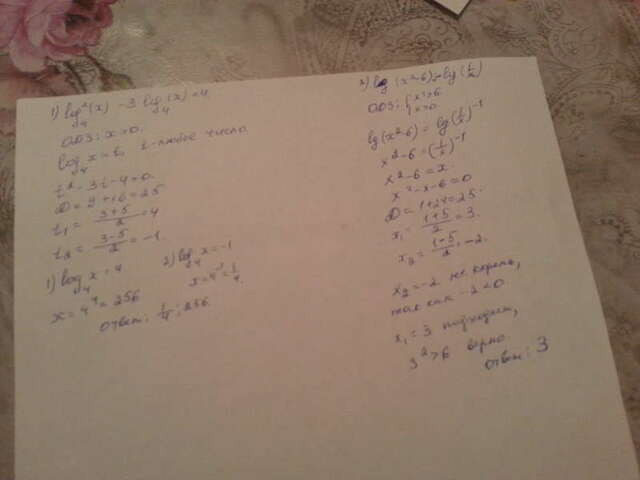 1) log₄²(x) - 3 log₄(x) = 4
ОДЗ: x>0.
log₄ x = t, t - любое число.
t² - 3t - 4 = 0.
D = 9 + 16 = 25
t₁ = (3+5)/2 = 4
t₂ = (3-5)/2 = -1.
1) log₄ x = 4
x = 4⁴ = 256
2) log₄ x = -1
x = 4⁻¹ = 1/4.
Ответ: 1/4; 256.
lg (x²-6) = lg (1/x)
ОДЗ: { x²>6
x>0.
lg (x²-6) = lg (1/x)⁻¹
x²-6 = (1/x)⁻¹
x²-6 = x.
x²-x-6=0
D = 1+24=25.
x₁ = (1+5)/2 = 3.
x₂ = (1-5)/2 = -2.
x₂ = -2 не корень,
так как -2<0.
x₁ = 3 подходит,
3²>6 верно.
Ответ: 3